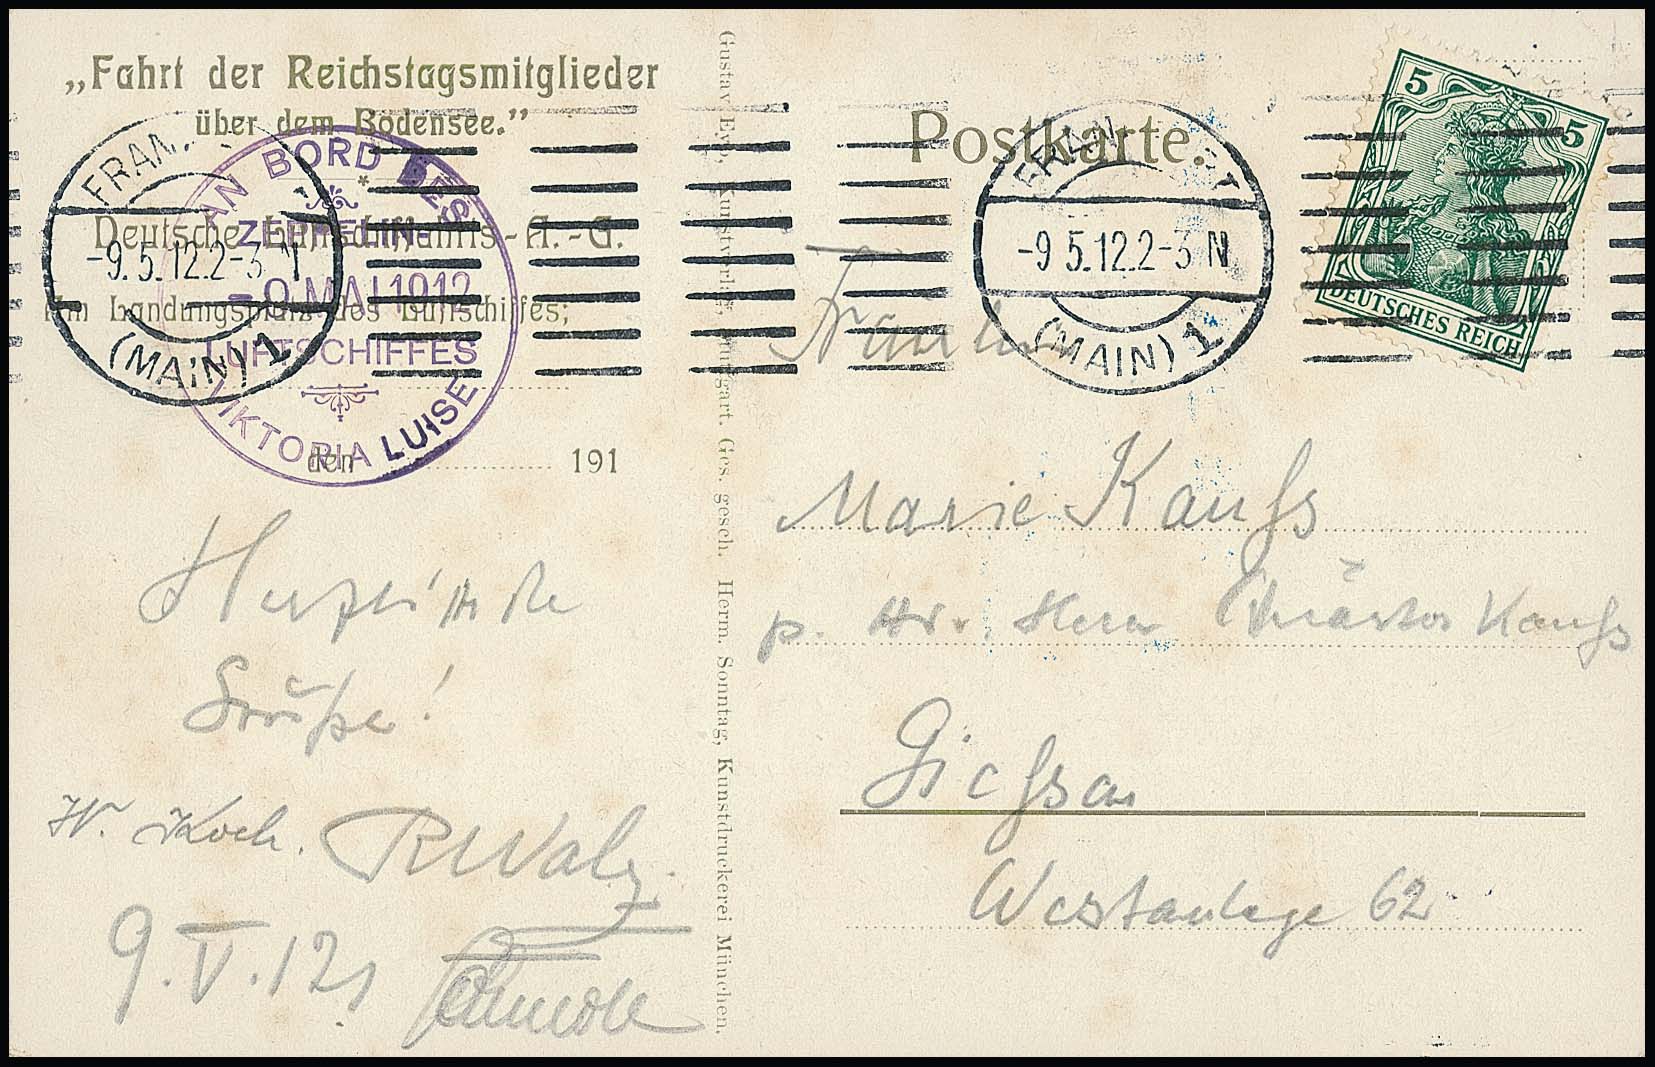 „Fahrt der Reichstagsmitglieder
über dem Bodensee.”
*
Deutsche Luftschiffahrts-A.-G.
Am Landungsplatz des Luftschiffes;
den 191
AN BORD DES
ZEPPELIN-
-9.MAI 1912
LUFTSCHIFFES
VIKTORIA LUISE
FRAN
-9.5.12.2-3 N
(MAIN) 1
Herzliche
Grüße!
W. Koch. RWalz.
9.V.12
Gustav Ey Kunstverlag, Stuttgart. Ges. gesch. Herm. Sonntag, Kunstdruckerei München.
Postkarte.
FRANKFURT
-9 5.12.2-3 N
(MAIN) 1
5
5
DEUTSCHES REICH
Marie Kaufs
p. Adr. Herrn Kaufs
Giessen
Westanlage 62